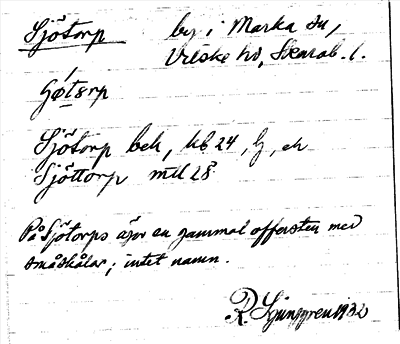 Sjötorp by i Marka sn,
Vilske hd, Skarab. l.
Sjötorp bek, hb 24, G, ek
Sjöttorp mtl 28
På Sjötorps ägor en gammal offersten med
småskålar; intet namn.
R Ljunggren 1932